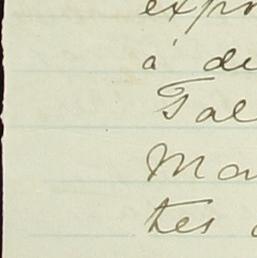 expo
à de
Tal
Ma
tes